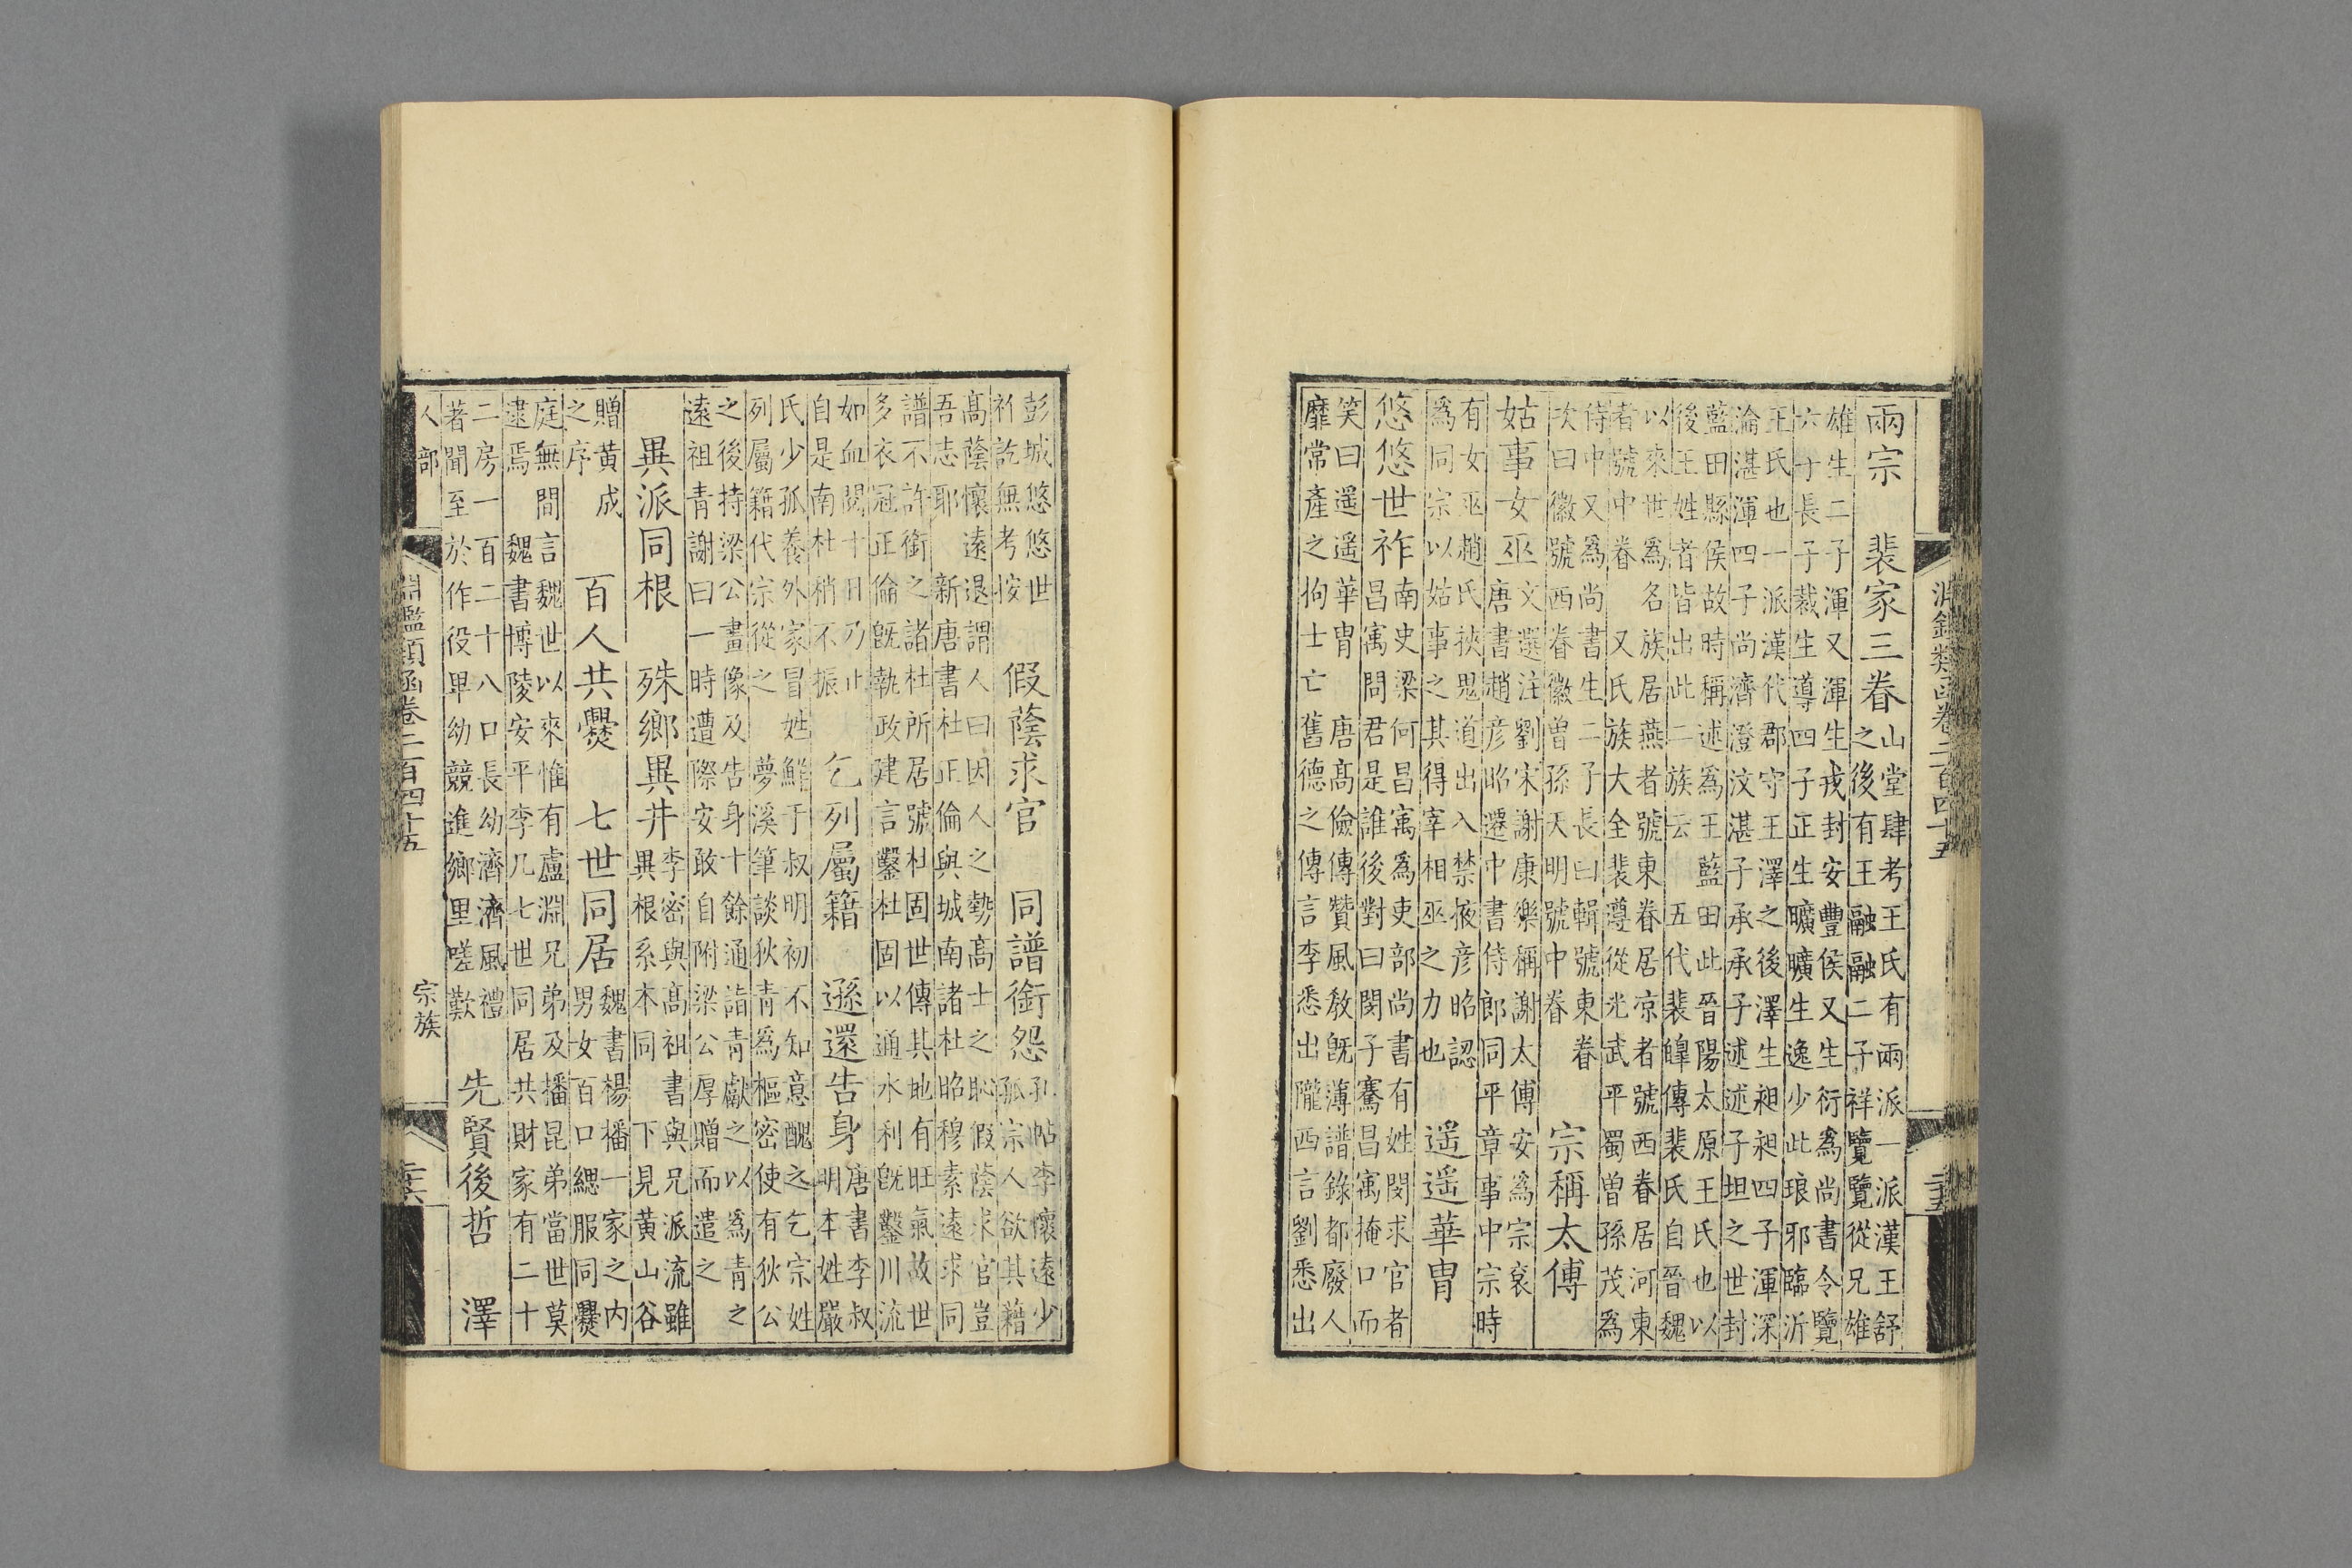 淵鑑類函卷二百四十五 二十五
兩宗 裴家三眷 山堂肆考王氏有兩派一派漢王舒
之後有王融融二子祥覽覽從兄雄
雄生二子渾又渾生戎封安豐侯又生衍爲尚書令覽
六子長子裁生導四子正生曠曠生逸少此琅邪臨沂
王氏也一派漢代郡守王澤之後澤生昶昶四子渾深
淪湛渾四子尚濟澄汶湛子承承子述述子坦之世封
藍田縣侯故時稱述爲王藍田此晉陽太原王氏也以
後王姓者皆出此二族云 五代裴皥傳裴氏自晉魏
以來世爲名族居燕者號東眷居凉者號西眷居河東
者號中眷 又氏族大全裴遵從光武平蜀曾孫茂爲
侍中又爲尚書生二子長曰輯號東眷
次曰徽號西眷徽曾孫天明號中眷 宗稱太傅
姑事女巫 文選注劉宋謝康樂稱謝太傅安爲宗袞
唐書趙彦昭遷中書侍郎同平章事中宗時
有女巫趙氏挾鬼道出入禁掖彦昭認
爲同宗以姑事之其得宰相巫之力也 遥遥華胄
悠悠世祚 南史梁何昌寓爲吏部尚書有姓閔求官者
昌寓問君是誰後對曰閔子騫昌寓掩口而
笑曰遥遥華胄 唐高儉傳贊風教旣薄譜錄都廢人
靡常產之拘士亡舊德之傳言李悉出隴西言劉悉出
彭城悠悠世
祚訖無考按 假蔭求官 同譜銜怨 孔帖李懷遠少
孤宗人欲其藉
高蔭懷遠退謂人曰因人之勢高士之恥假蔭求官豈
吾志耶 新唐書杜正倫與城南諸杜昭穆素遠求同
譜不許銜之諸杜所居號杜固世傳其地有旺氣故世
多衣冠正倫旣執政建言鑿杜固以通水利旣鑿川流
如血閱十日乃止
自是南杜稍不振 乞列屬籍 遜還告身 唐書李叔
明本姓嚴
氏少孤養外家冒姓鮮于叔明初不知意醜之乞宗姓
列屬籍代宗從之 夢溪筆談狄青爲樞密使有狄公
之後持梁公畫像及告身十餘通詣青獻之以爲青之
遠祖青謝曰一時遭際安敢自附梁公厚贈而遣之
異派同根 殊鄉異井 李密與高祖書與兄派流雖
異根系本同 下見黃山谷
贈黃成
之序 百人共爨 七世同居 魏書楊播一家之內
男女百口緦服同爨
庭無間言魏世以來惟有盧淵兄弟及播昆弟當世莫
逮焉 魏書博陵安平李几七世同居共財家有二十
二房一百二十八口長幼濟濟風禮
著聞至於作役卑幼競進鄉里嗟歎 先賢後哲 澤
人部 淵鑑類函卷二百四十五 宗族 二十六